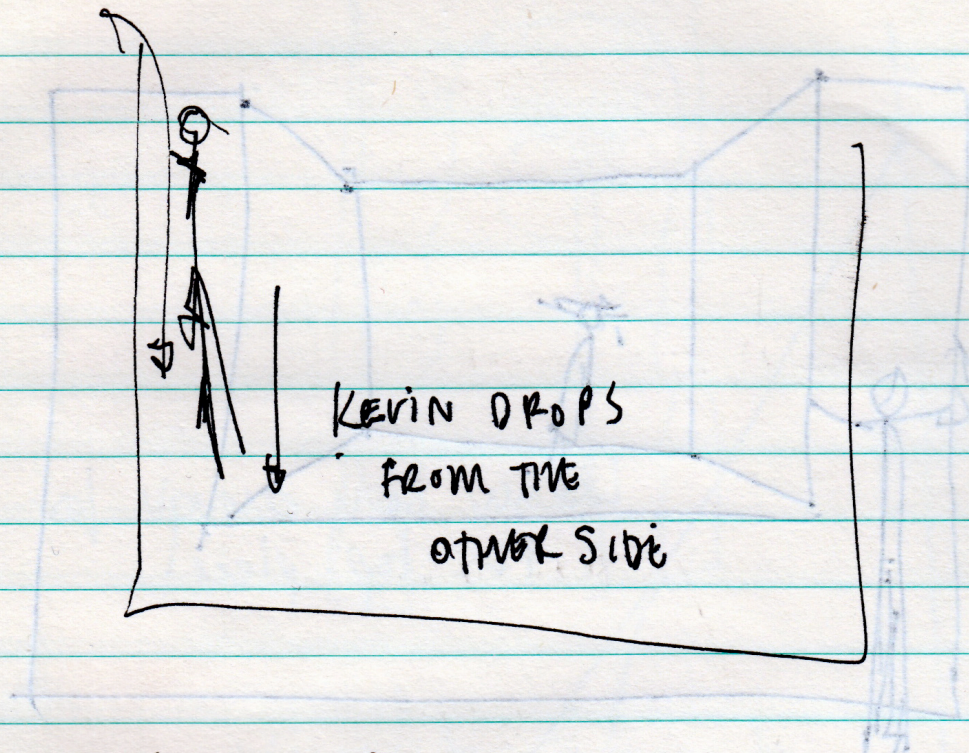 KEViN DROPS
FROM THE
OTHER SiDE